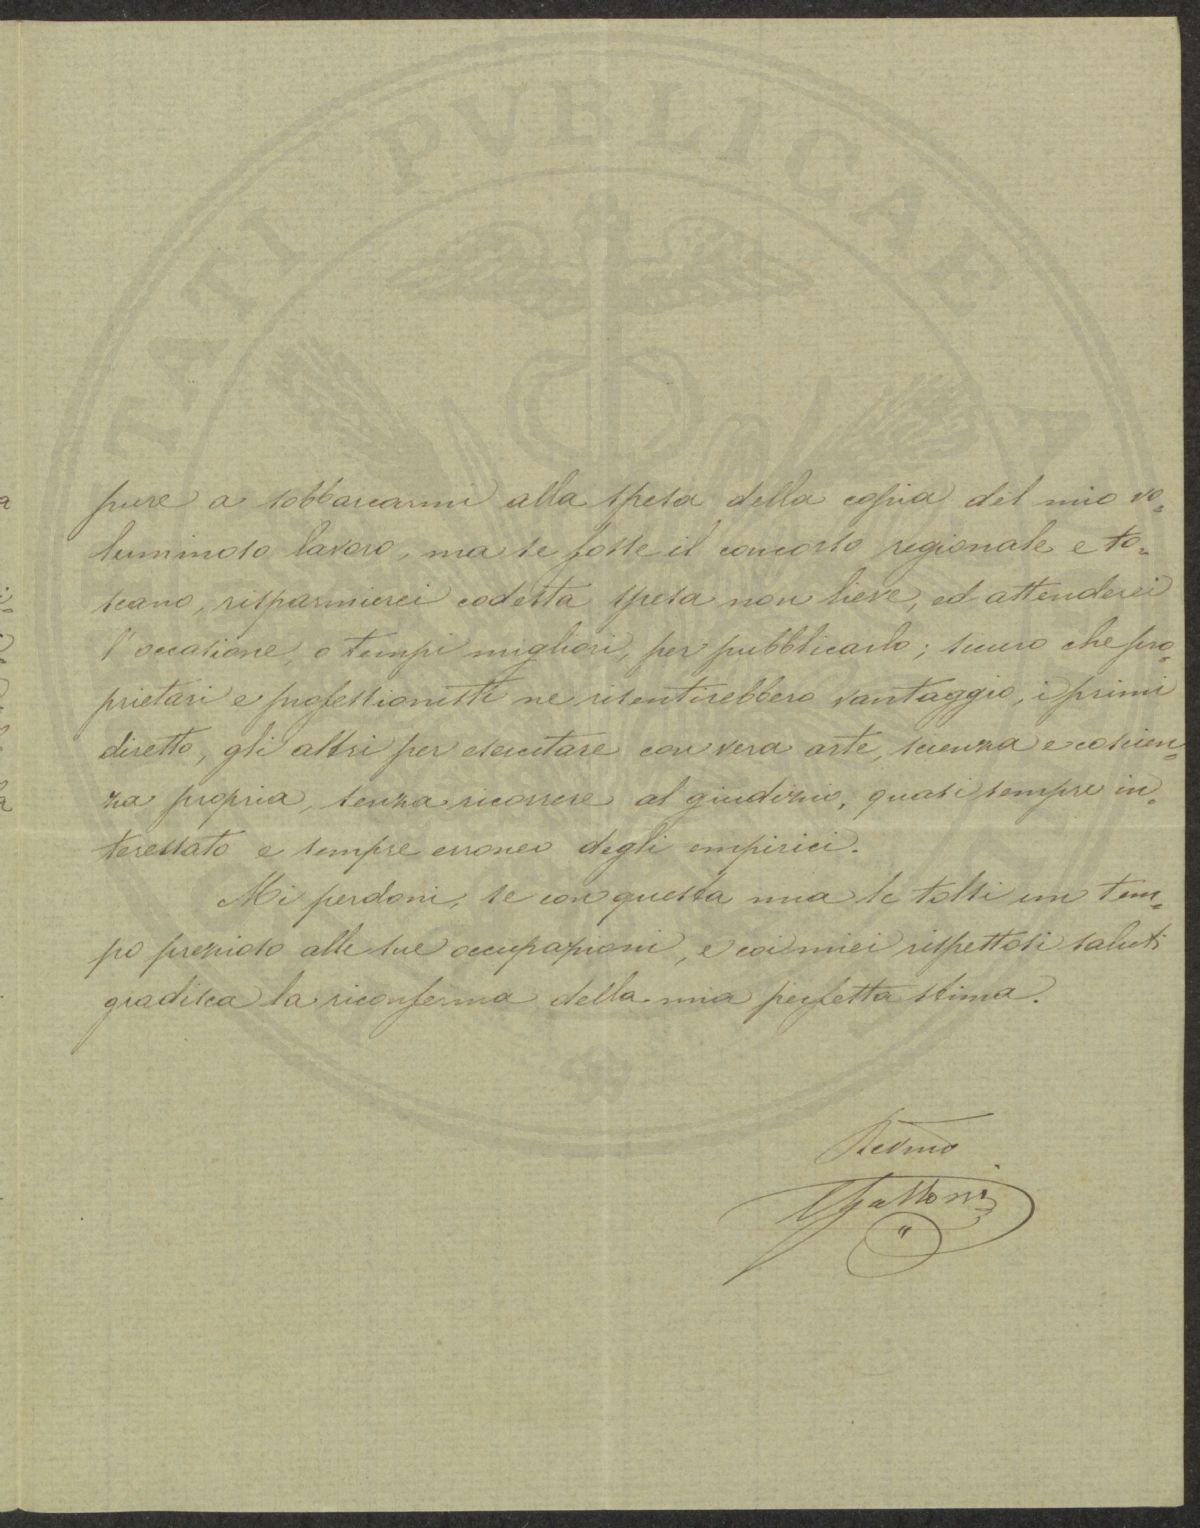 TATI PVBLICAE A
pure a sobbarcarmi alla spesa della copia del mio vo-
luminoso lavoro, ma se fosse il concorso regionale e to-
scano, risparmierei codesta spesa non lieve, ed attenderei
l'occasione, o tempi migliori, per pubblicarlo; sicuro che pro-
prietari e professionisti ne risentirebbero vantaggio, i primi
diretto, gli altri per esercitare con vera arte, scienza e coscien-
za propria, senza ricorrere al giudizio, quasi sempre in-
teressato e sempre erroneo degli empirici.
Mi perdoni, se con questa mia le tolsi un tem-
po prezioso alle sue occupazioni, e coi miei rispettosi saluti
gradisca la riconferma della mia perfetta stima.